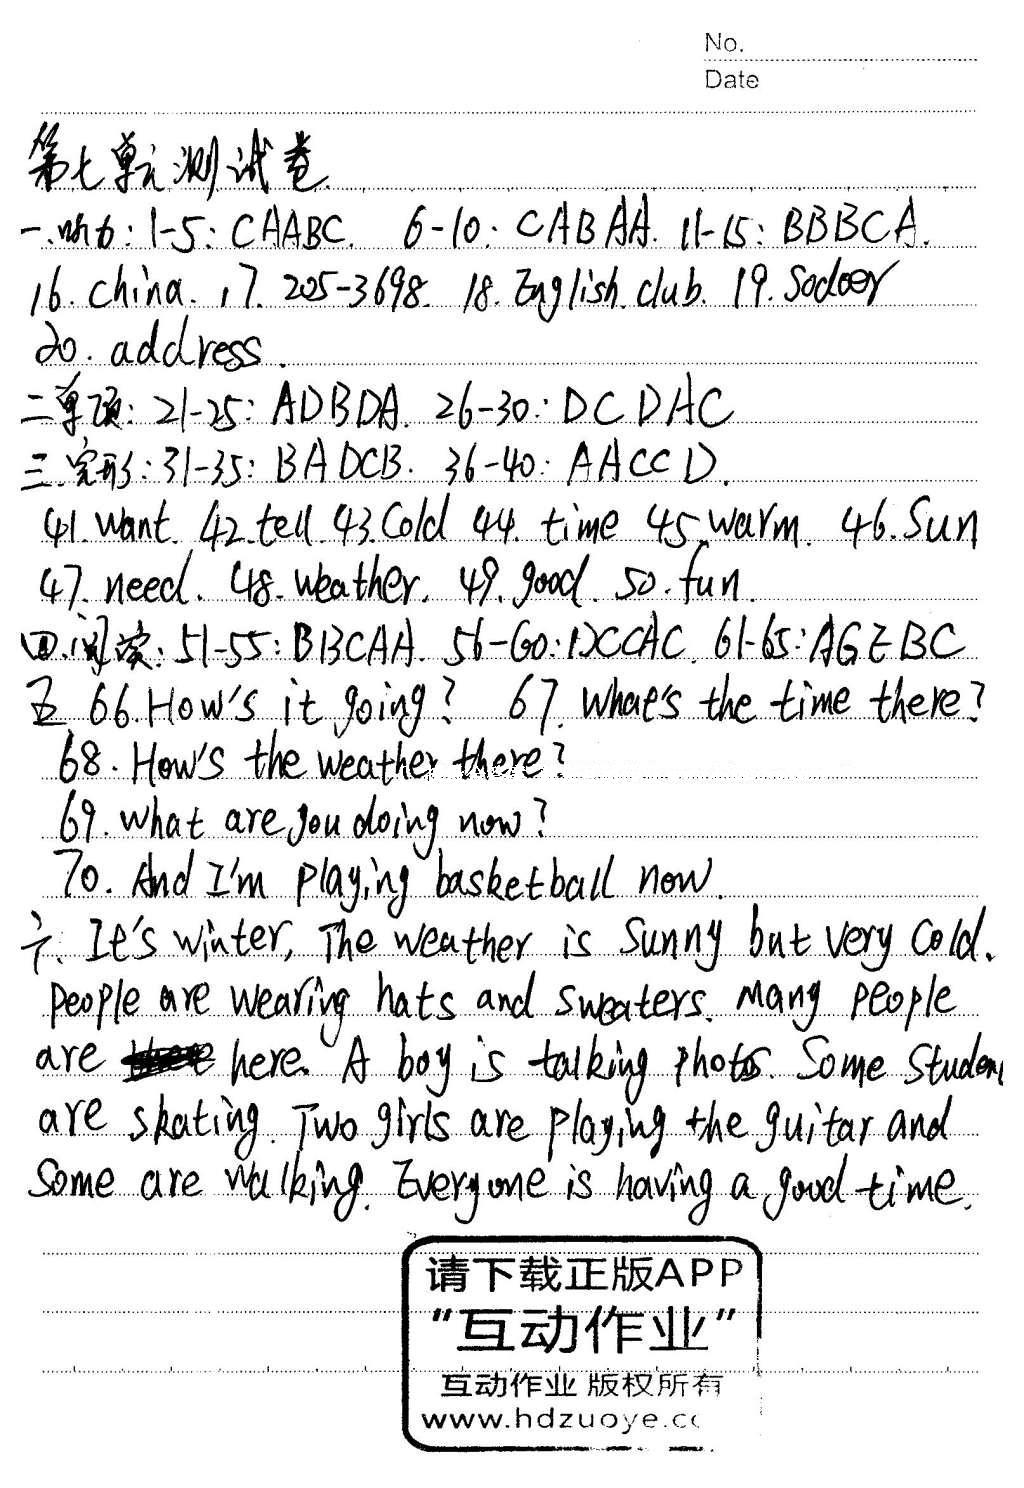 No.
Date
第七单元测试卷
一.听力: 1-5: CAABC. 6-10: CABAA. 11-15: BBBCA.
16. China. 17. 205-3698. 18. English club. 19. Sodoer
20. address.
二.单项: 21-25: ADBDA. 26-30: DCDAC
三.完形: 31-35: BADCB. 36-40: AACCD.
41. Want. 42. tell. 43. Cold 44. time 45. warm. 46. Sun
47. need. 48. weather. 49. good. 50. fun.
四.阅读: 51-55: BBCAA. 56-60: DCCAC. 61-65: AGEBC
五 66. How's it going? 67. What's the time there?
68. How's the weather there?
69. What are you doing now?
70. And I'm playing basketball now.
六. It's winter, The weather is Sunny but very Cold.
People are wearing hats and sweaters. Many people
are here. A boy is talking photos. Some Student
are skating. Two girls are playing the guitar and
Some are walking. Everyone is having a good time.
请下载正版APP
“互动作业”
互动作业 版权所有
www.hdzuoye.cc